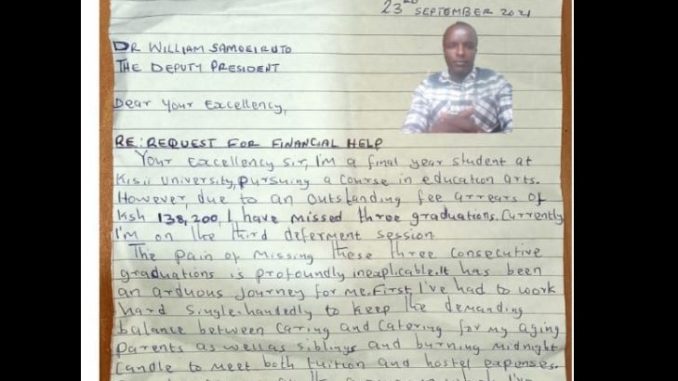 23RD SEPTEMBER 2021
DR WILLIAM SAMOEIRUTO
THE DEPUTY PRESIDENT
Dear Your Excellency,
RE: REQUEST FOR FINANCIAL HELP
Your Excellency Sir, I'm a final year student at
Kisii University, pursuing a course in education arts.
However, due to an outstanding fee arrears of
Ksh 138,200, I have missed three graduations. Currently
I'm on the third deferment session
The pain of missing these three consecutive
graduations is profoundly inexplicable. It has been
an arduous journey for me. First, I've had to work
hard single-handedly to keep the demanding
balance between caring and catering for my aging
parents as well as siblings and burning midnight
candle to meet both tuition and hostel expenses.